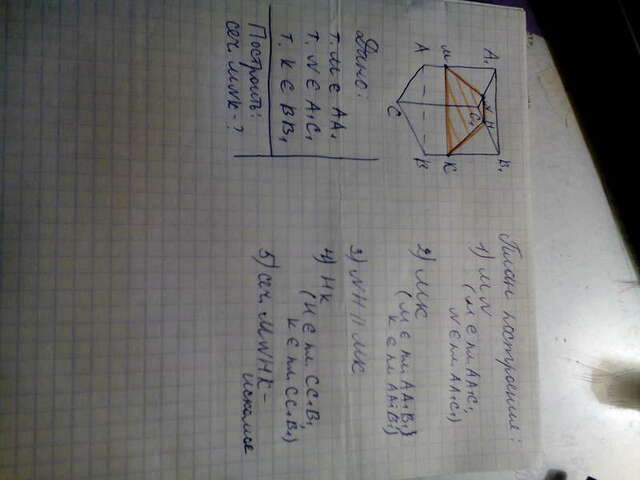 A₁
B₁
M
N
H
C₁
K
A
B
C
Дано:
т. M ∈ AA₁
т. N ∈ A₁C₁
т. K ∈ BB₁
Построить:
сеч. MNK - ?
План построения:
1) MN
(M ∈ пл. AA₁C₁
N ∈ пл. AA₁C₁)
2) MK
(M ∈ пл. AA₁B₁)
K ∈ пл AA₁B₁)
3) NH || MK
4) HK
(H ∈ пл. CC₁B₁
K ∈ пл. CC₁B₁)
5) сеч. MNHK -
искомое